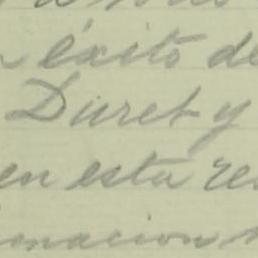 éxito de
Duret y
en esta re
macion